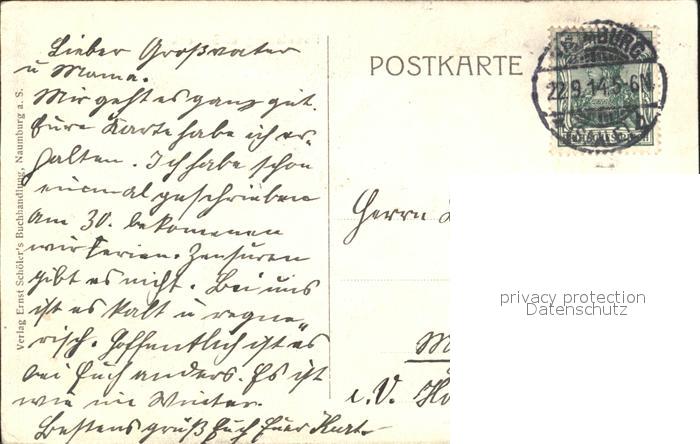 Lieber Großvater
u Mama.
Mir geht es ganz gut.
Eure Karte habe ich er-
halten. Ich habe schon
einmal geschrieben
Am 30. bekommen
wir Ferien. Zensuren
gibt es nicht. Bei uns
ist es kalt u regne
risch. Hoffentlich ist es
bei Euch anders. Es ist
wie im Winter.
Bestens grüßt Euch Euer Kurt
Verlag Ernst Schöler's Buchhandlung, Naumburg a. S.
POSTKARTE
22.9.14.5-6N.
Herrn
i. V.
privacy protection
Datenschutz